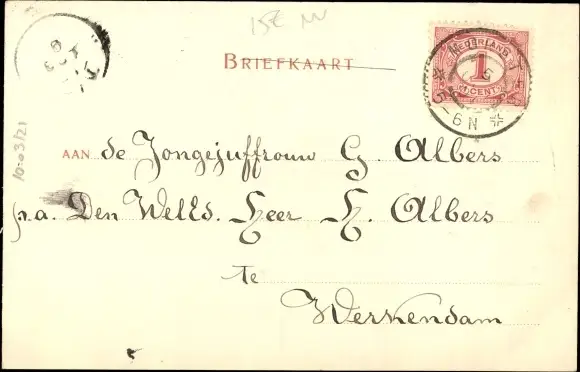 15€ NV
BRIEFKAART
NEDERLAND
1
CENT
5-6N
10-03/21
AAN de Jongejuffrouw G. Albers
p.a. Den WelEd. Heer H. Albers
te
Werkendam